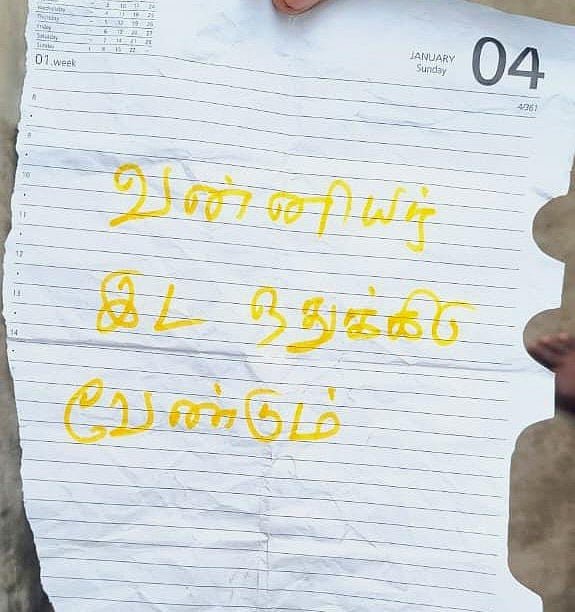 Wednesday 3 10 17 24
Thursday 4 11 18 25
Friday 5 12 19 26
Saturday 6 13 20 27
Sunday 7 14 21 28
01.week
JANUARY
Sunday
04
4/361
8
9
10
11
12
13
14
வன்னியர்
இட ஒதுக்கீடு
வேண்டும்